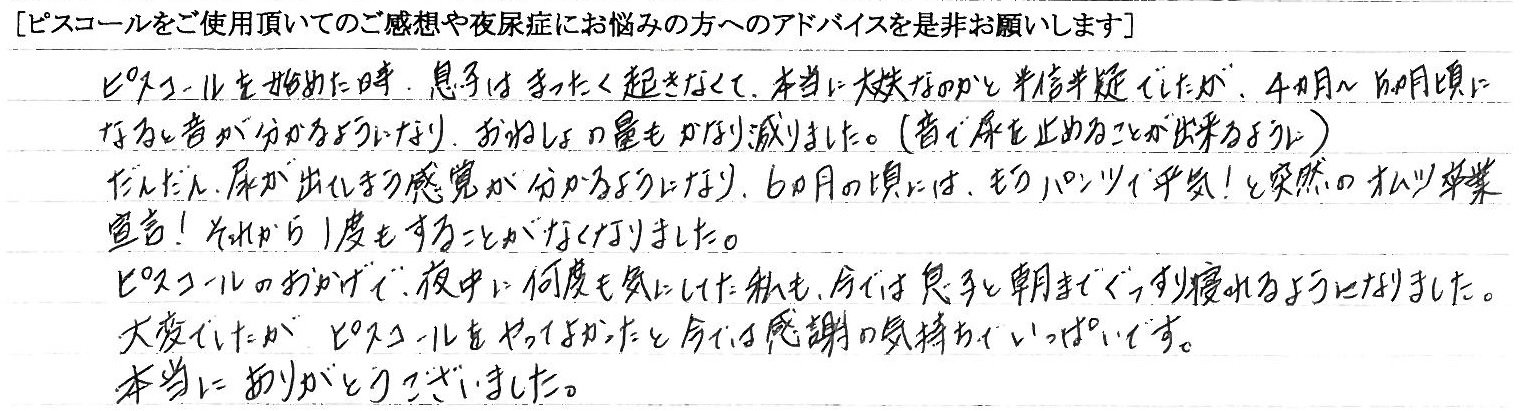 [ピスコールをご使用頂いてのご感想や夜尿症にお悩みの方へのアドバイスを是非お願いします]
ピスコールを始めた時、息子はまったく起きなくて、本当に大丈夫なのかと半信半疑でしたが、4カ月〜5カ月頃に
なると音が分かるようになり、おねしょの量もかなり減りました。(音で尿を止めることが出来るように)
だんだん、尿が出てしまう感覚が分かるようになり、6カ月の頃には、もうパンツで平気！と突然のオムツ卒業
宣言！それから1度もすることがなくなりました。
ピスコールのおかげで、夜中に何度も気にしてた私も、今では息子と朝までぐっすり寝れるようになりました。
大変でしたが ピスコールをやってよかったと今では感謝の気持ちでいっぱいです。
本当にありがとうございました。